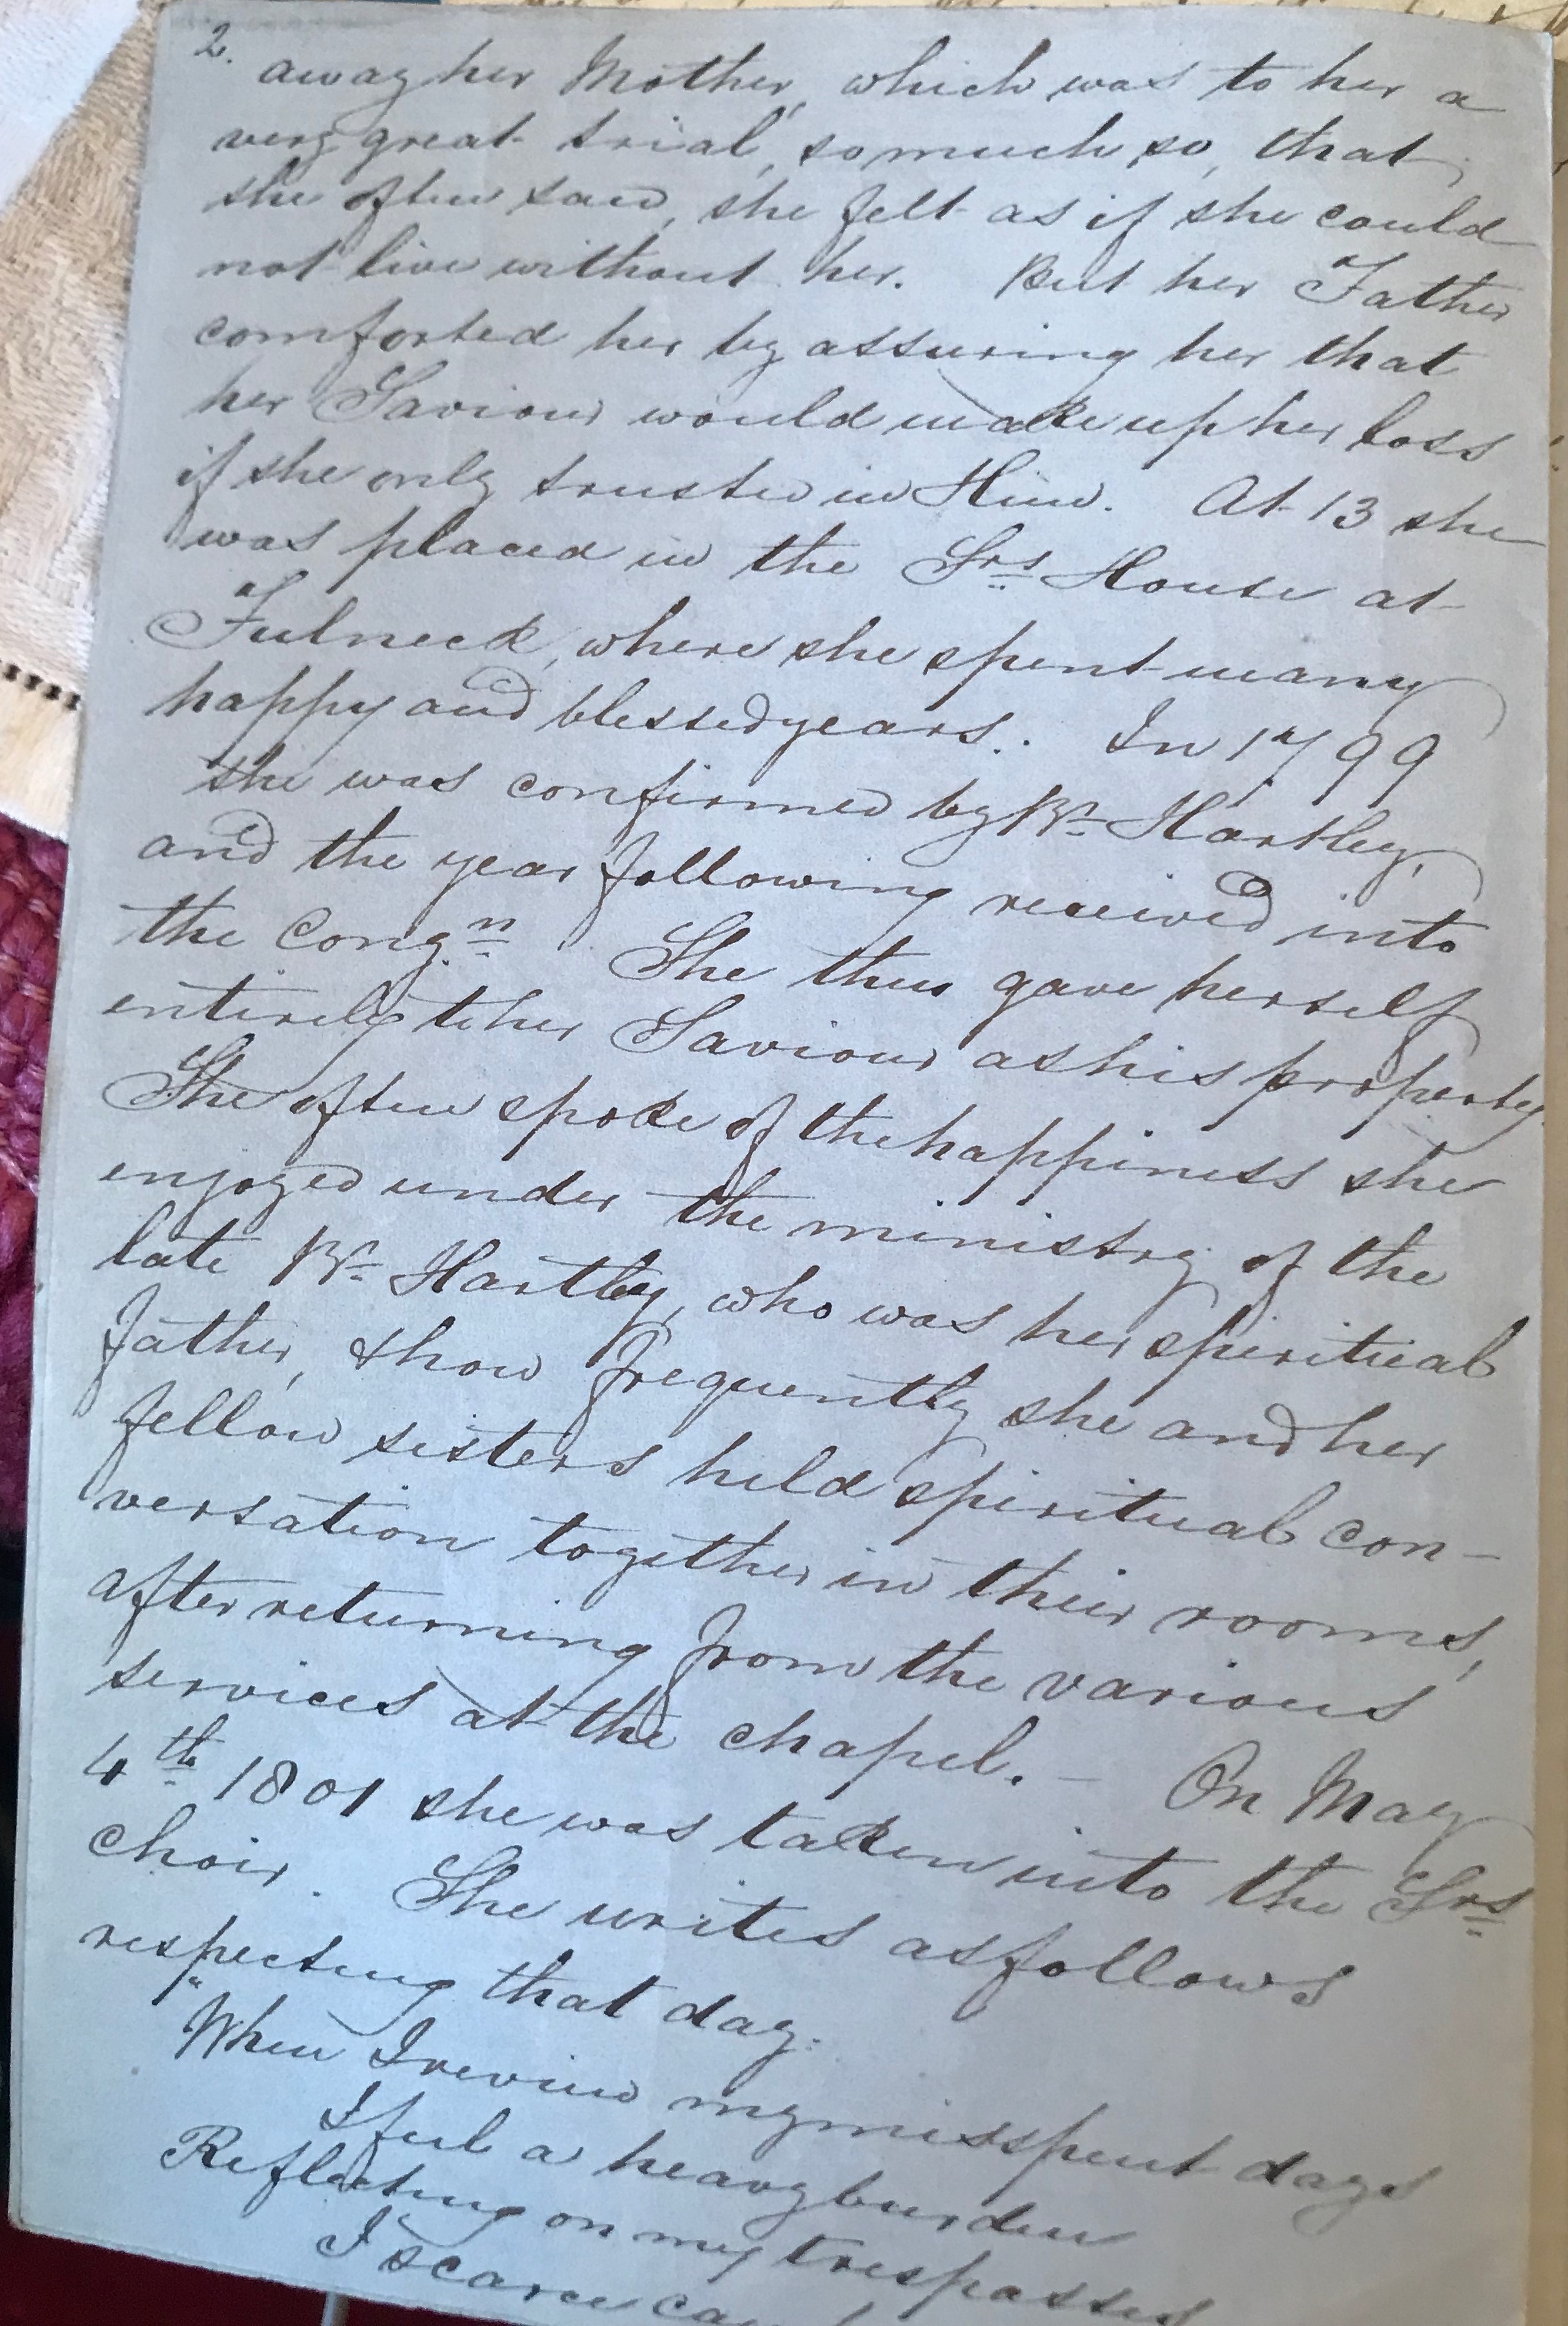 2.
away her Mother, which was to her a
very great trial, so much so, that
she often said, she felt as if she could
not live without her. But her Father
comforted her by assuring her that
her Saviour would make up her loss
if she only trusted in Him. At 13 she
was placed in the Srs House at
Fulneck, where she spent many
happy and blessed years. In 1799
she was confirmed by Br Hartley,
and the year following received into
the Congn. She thus gave herself
entirely to her Saviour as his property.
She often spoke of the happiness she
enjoyed under the ministry of the
late Br Hartley, who was her spiritual
father, & how frequently she and her
fellow sisters held spiritual con-
versation together in their rooms,
after returning from the various
services at the chapel. - On May
4th 1801 she was taken into the Srs
Choir. She writes as follows
respecting that day:
"When I review my misspent days
I feel a heavy burden
Reflecting on my trespasses
I scarce